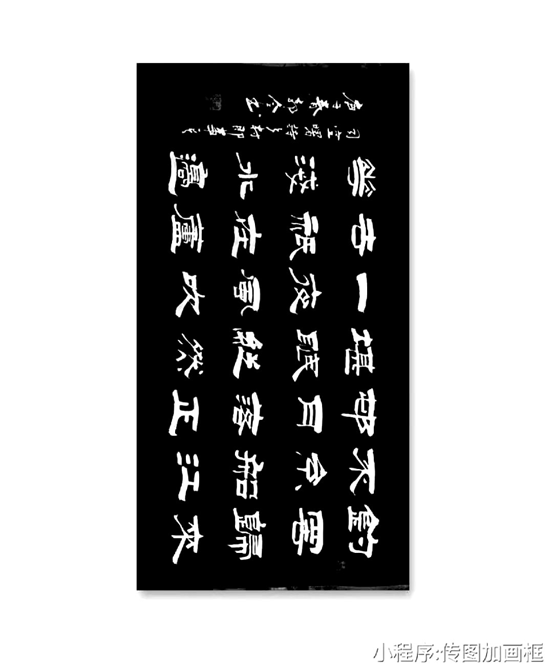 釣罷歸來
不系船江
邨月落正
堪眠縱然
一夜風吹
去祇在蘆
花淺水邊
司空曙詩江村即事
小程序:传图加画框